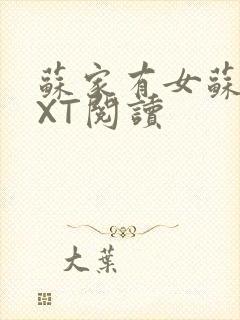 蘇家有女蘇
XT閱讀
大葉